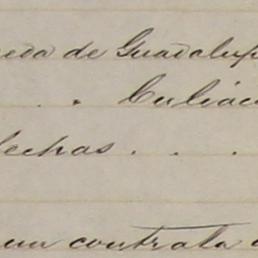 neda de Guadalup
. . Culiác
fechas . . .
un contrata